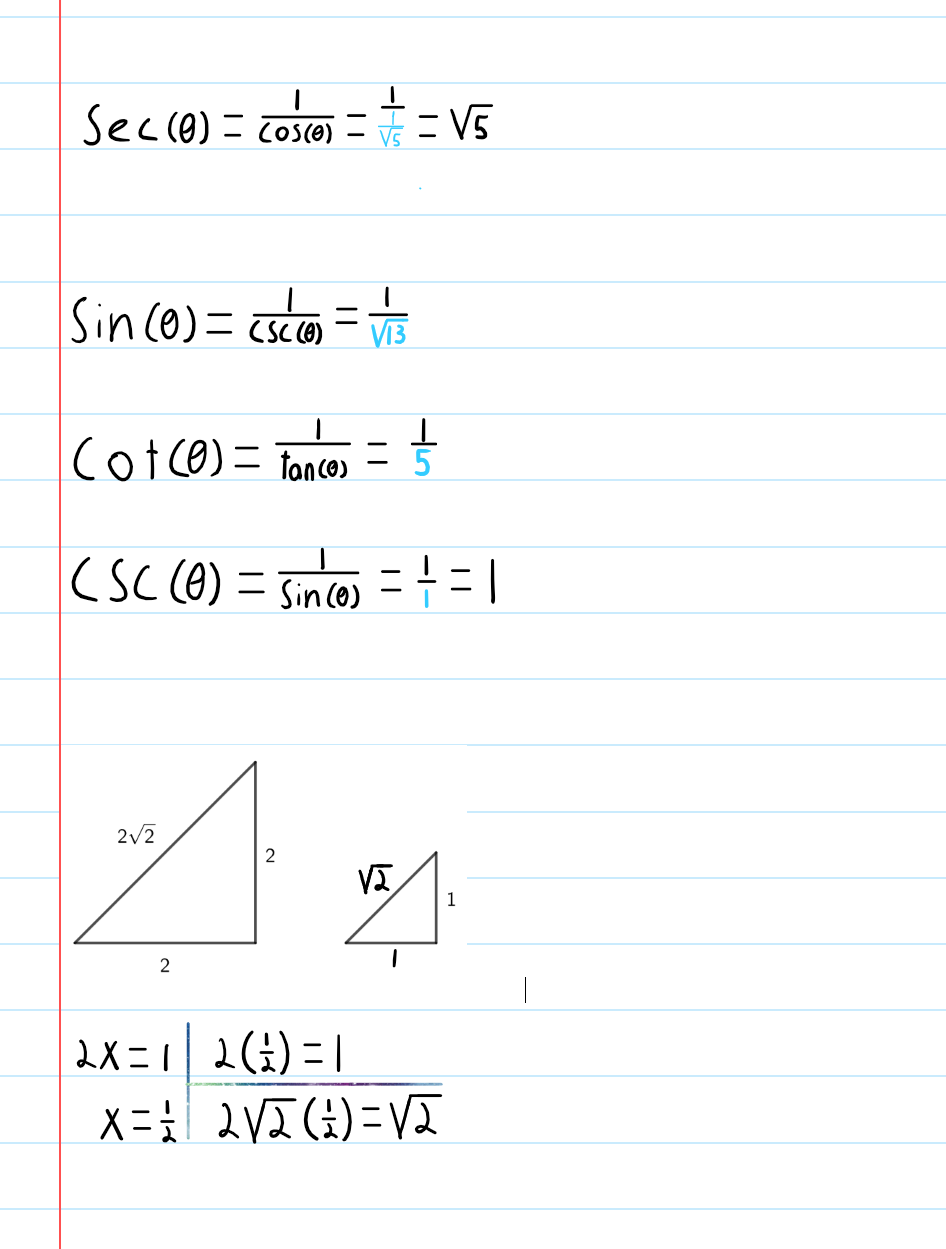 Sec(θ) = 1/cos(θ) = 1/(1/√5) = √5
Sin(θ) = 1/csc(θ) = 1/√13
Cot(θ) = 1/tan(θ) = 1/5
CSC(θ) = 1/Sin(θ) = 1/1 = 1
2√2
2
√2
1
2
1
2x = 1 | 2(1/2) = 1
x = 1/2 | 2√2(1/2) = √2